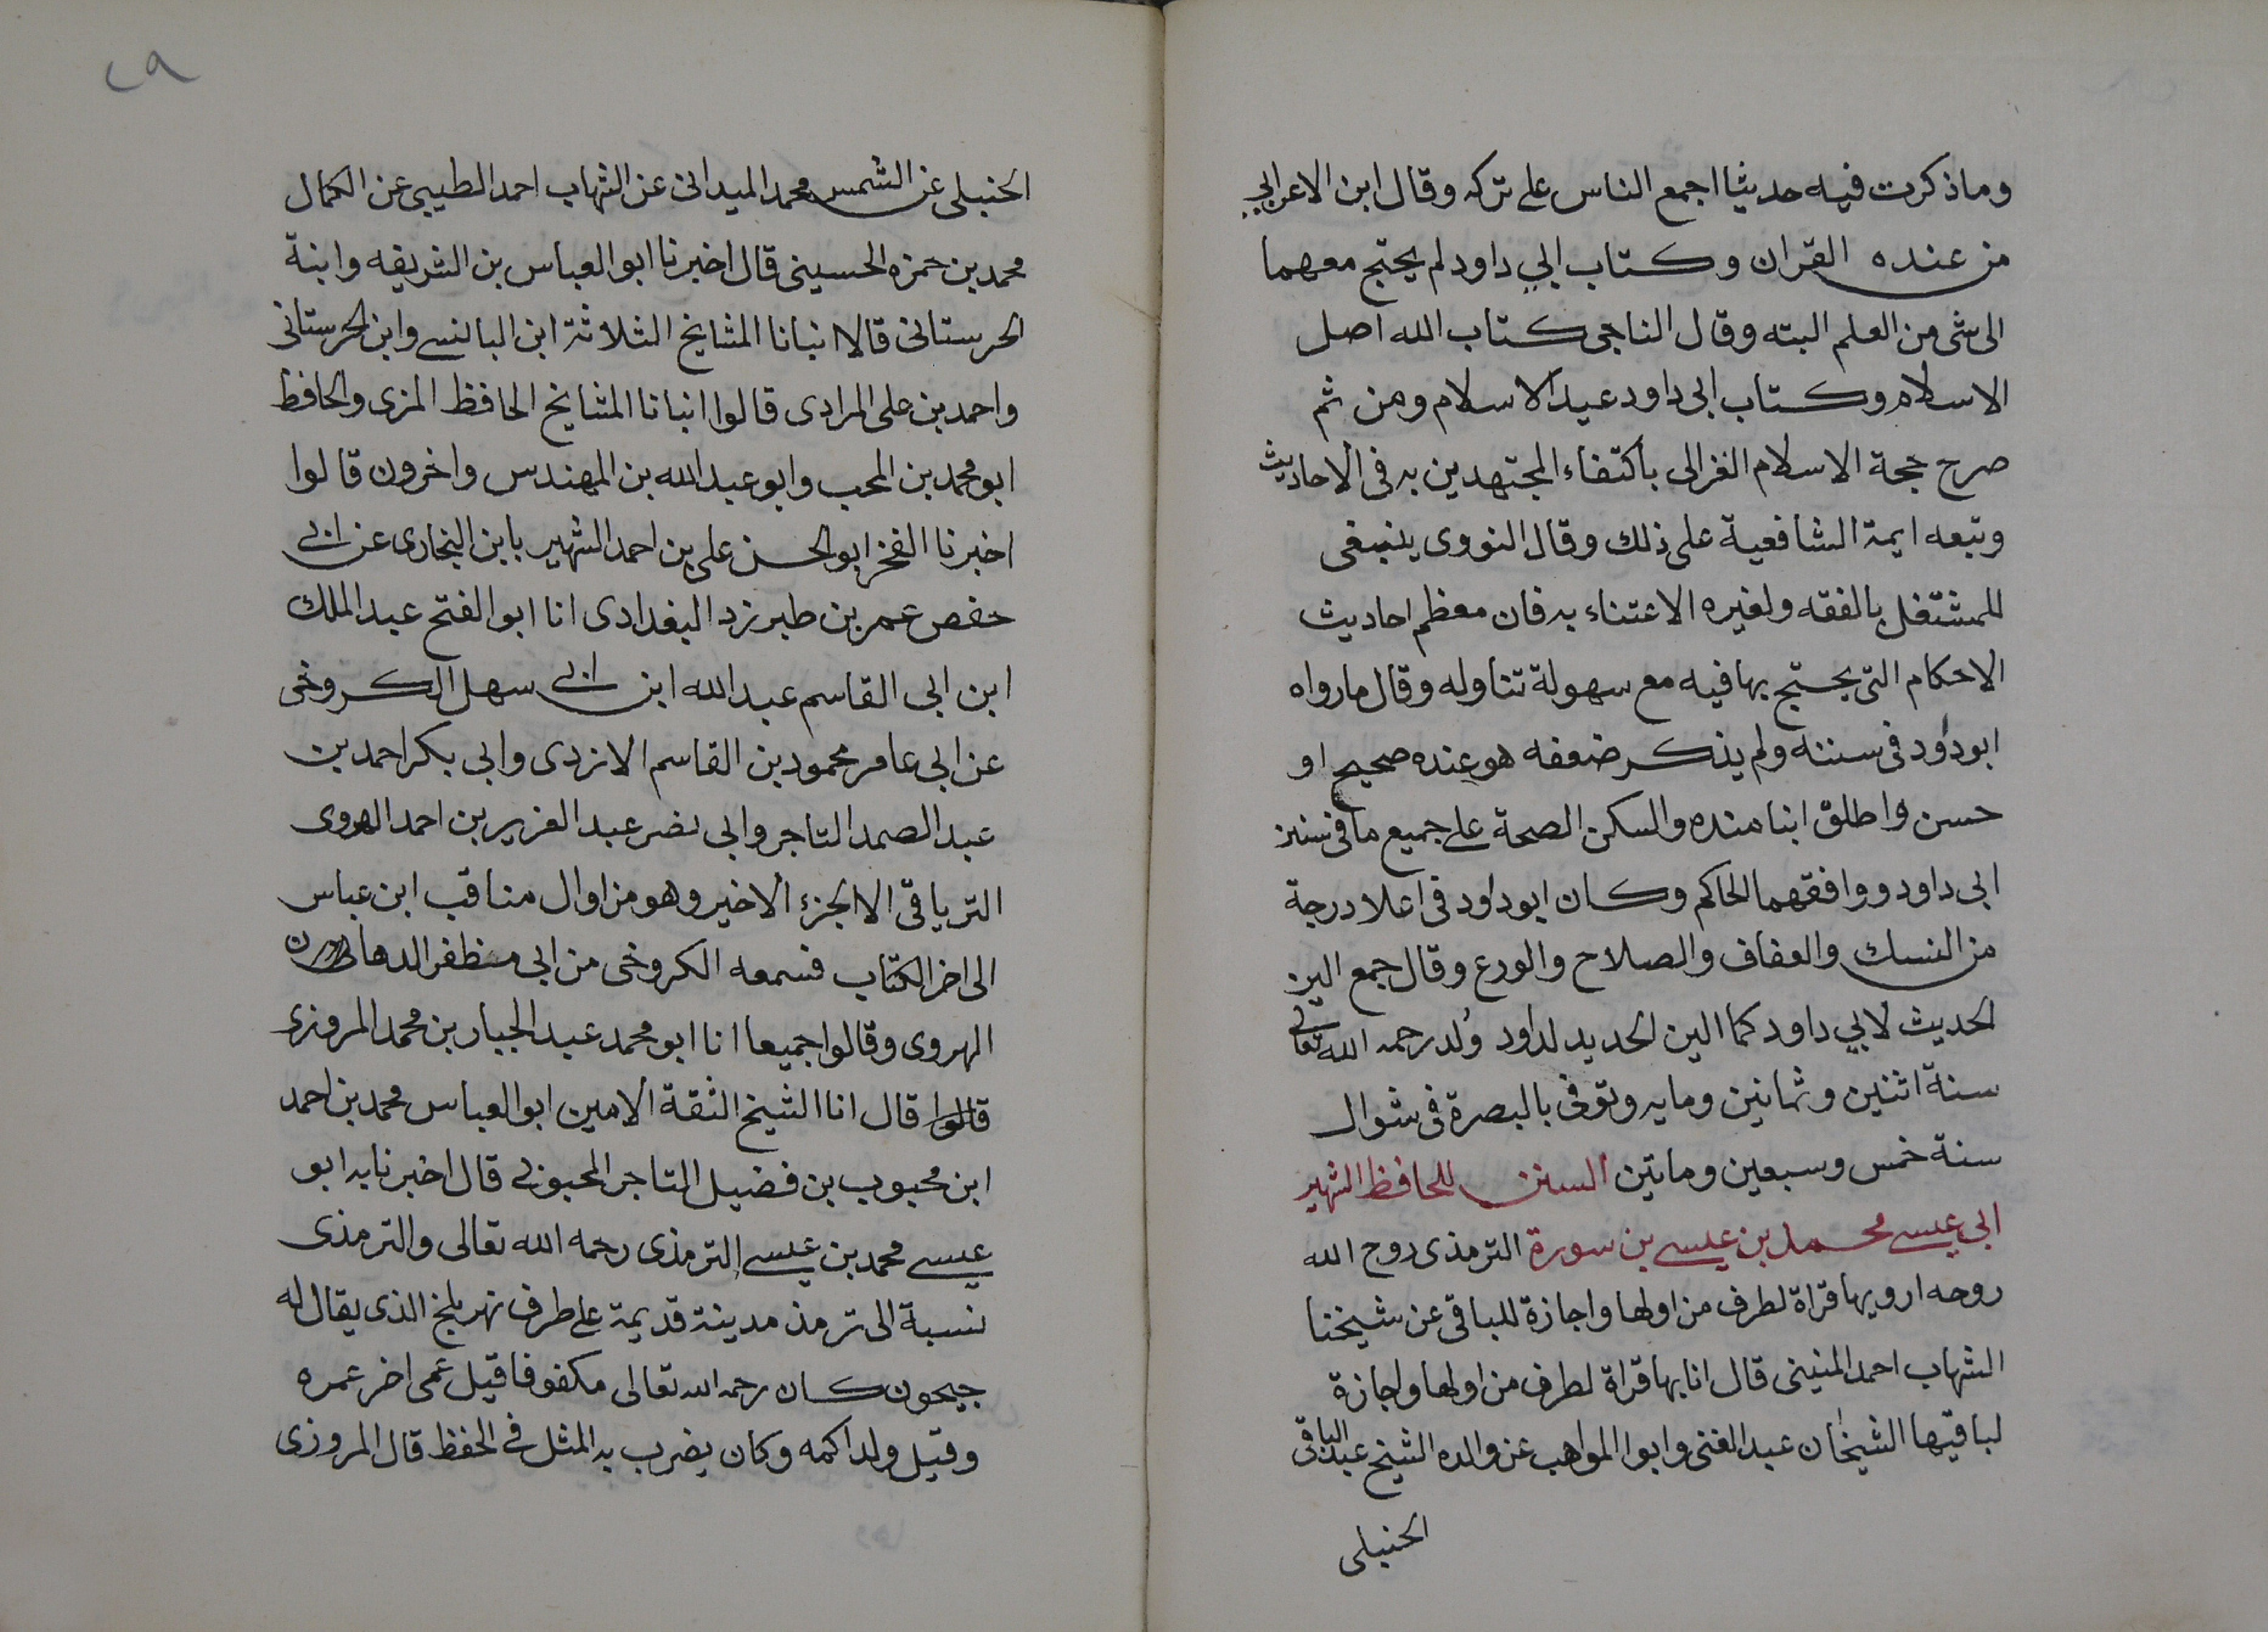 وما ذكرت فيه حديثا اجمع الناس على تركه وقال ابن الاعرابي
من عنده القران وكتاب ابي داود لم يحتج معهما
الى شى من العلم البته وقال الناجى كتاب الله اصل
الاسلام وكتاب ابى داود عيد الاسلام ومن ثم
صرح حجة الاسلام الغزالى باكتفاء المجتهدين به فى الاحاديث
وتبعه ايمة الشافعية على ذلك وقال النووى ينبغى
للمشتغل بالفقه ولغيره الاعتناء به فان معظم احاديث
الاحكام التى يحتج بها فيه مع سهولة تناوله وقال ما رواه
ابو داود فى سننه ولم يذكر ضعفه هو عنده صحيح او
حسن واطلق ابنا منده والسكن الصحة على جميع ما فى سنن
ابى داود ووافقهما الحاكم وكان ابو داود فى اعلا درجة
من النسك والعفاف والصلاح والورع وقال جمع الين
الحديث لابي داود كما الين الحديد لداود ولد رحمه الله تعالى
سنة اثنين وثمانين ومايه وتوفى بالبصرة فى شوال
سنة خمس وسبعين وماتين السنن للحافظ الشهير
ابى عيسى محمد بن عيسى بن سورة الترمذى روح الله
روحه ارويها قراة لطرف من اولها واجازة للباقى عن شيخنا
الشهاب احمد المنينى قال انا بها قراة لطرف من اولها واجازة
لباقيها الشيخان عبد الغنى وابوا المواهب عن والده الشيخ عبد الباقى
الحنبلى
٢٩
الحنبلى عن الشمس محمد الميدانى عن الشهاب احمد الطيبى عن الكمال
محمد بن حمزه الحسينى قال اخبرنا ابو العباس بن الشريفه وابنة
الحرستانى قالا انبانا المشايخ الثلاثة ابن البالسى وابن الحرستانى
واحمد بن على المرادى قالوا انبانا المشايخ الحافظ المزى والحافظ
ابو محمد بن المحب وابو عبد الله بن المهندس واخرون قالوا
اخبرنا الفخر ابو الحسن على بن احمد الشهير بابن البخارى عن ابى
حفص عمر بن طبرزد البغدادى انا ابو الفتح عبد الملك
ابن ابى القاسم عبد الله ابن ابى سهل الكروخى
عن ابى عامر محمود بن القاسم الازدى وابى بكر احمد بن
عبد الصمد التاجر وابى نصر عبد العزيز بن احمد الهروى
الترياقى الا الجزء الاخير وهو من اوال مناقب ابن عباس
الى اخر الكتاب فسمعه الكروخى من ابى مظفر الدهان
الهروى وقالوا جميعا انا ابو محمد عبد الجبار بن محمد المروزى
قالوا قال انا الشيخ الثقة الامين ابو العباس محمد بن احمد
ابن محبوب بن فضيل التاجر المحبوبى قال اخبرنا به ابو
عيسى محمد بن عيسى الترمذى رحمه الله تعالى والترمذى
نسبة الى ترمذ مدينة قديمة على طرف نهر بلخ الذى يقال له
جيحون كان رحمه الله تعالى مكفوفا قيل عمى اخر عمره
وقيل ولد اكمه وكان يضرب به المثل فى الحفظ قال المروزى